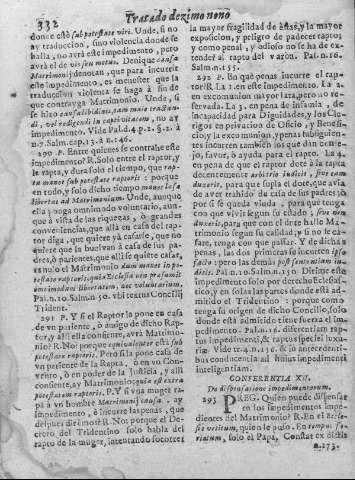 332 Tratado dezimo nono
donde esté sub potestate viri. Unde, si no
ay traduccion, sino violencia donde se
halla, no averá este impedimento, pero
avrá el de vis seu metus. Denique causa
Matrimonij denotat, que para incurrir
este impedimento, es menester que la
traduccion violenta se haga á fin de
que contrayga Matrimonio. Unde, si
se hizo causa libidinis, tam mala traden-
di, vel redigendi in captivitatem, no ay
impedimento. Vide Pal. d. 4. p. 2. §. 21. à
n. 7. Salm. cap. 13. à n. 146.
290 P. Entre quienes se contrahe este
impedimento? R. Solo entre el raptor, y
la rapta, y dura solo el tiempo, que rap-
ta manet sub potestate raptoris: porque
en todo, y solo dicho tiempo manet læsa
libertas ad Matrimonium. Unde, aunque
ella venga omnimodo voluntario, aun-
que à vista de las riquezas, ò grandes
conveniencias, que allá en casa del rap-
tor diga, que quiere yà casarse, que no
quiere que la buelvan à casa de sus pa-
dres, ò parientes, que allì se quiere casar,
es nulo el Matrimonio dum manet in po-
testate raptoris; quia Ecclesia eam præsumit
omnimodam libertatem, nec voluntarium.
Pal. n. 10. Salm. n. 50. ubi textus Concilij
Trident.
291 P. Y si el Raptor la pone en casa
de un pariente, ò amigo de dicho Rap-
tor, y allì ella consiente, avrá Matrimo-
nio? R. No: porque equivalenter està sub
potestate raptoris. Pero si la pone en casa
de un pariente de la Rapta, ò en un
Convento, ò en poder de la Justicia, y allì
consiente, ay Matrimonio; quia est extra
potestatem raptoris. P. Y si una muger ra-
pta à un hombre Matrimonij causa, ay
impedimento, ò incurre las penas, que
despues dirémos? R. No: porque el De-
creto del Tridentino solo habla del
rapto de la muger, intentando socorrer
la mayor fragilidad de èstas, y la mayor
exposicion, y peligro de padecer rapto;
y como penal, y odioso no se ha de ex-
tender al rapto del varon. Pal. n. 16.
Salm. n. 155.
292 P. En què penas incurre el rap-
tor? R. La 1. en este impedimento. La 2.
en excomunion mayor lata, pero no re-
servada. La 3. en pena de infamia, de
incapacidad para Dignidades, y los Cle-
rigos en privacion de Oficio, y Benefi-
cio; y la excomunion, y penas subsiguien-
tes incurren tambien los que dàn consejo,
favor, ò ayuda para el rapto. La 4.
en pena de que el raptor dote à la rapta
decentemente arbitrio iudicis, sive eam
duxerit, para que supla el dote, que avía
de aver recibido de casa de sus padres, ò
por si se queda viuda, para que tenga
con que vivir segun su estado; sive non
duxerit, para que con el dote halle Ma-
trimonio segun su calidad, y si no se ca-
sare, tenga con que passar. Y de dichas
penas, las dos primeras se incurren ipso
facto; pero las demàs post sententiam iu-
dicis. Pal. n. 10. Salm. n. 150. Dixose este
impedimento solo por derecho Eclesias-
tico, y en solas las partes donde està ad-
mitido el Tridentino: porque como
traiga su origen de dicho Concilio, solo
donde està admitido tal, induce tal im-
pedimento. Pal. n. 16. diferentiam rap-
tus impedimentis, & raptus speciei luxu-
riæ. Vide tr. 4. n. 156. & se à antecedenti-
bus conducendo ad huius impedimenti
intelligentiam.
CONFERENTIA XII.
De dispensatione impedimentorum.
293 PREG. Quien puede dispensar
en los impedimentos impe-
dientes del Matrimonio? R. En el Eccle-
siæ vetitum, quien lo puso. En tempus fe-
riatum, solo el Papa, Constat ex dictis
n. 273.